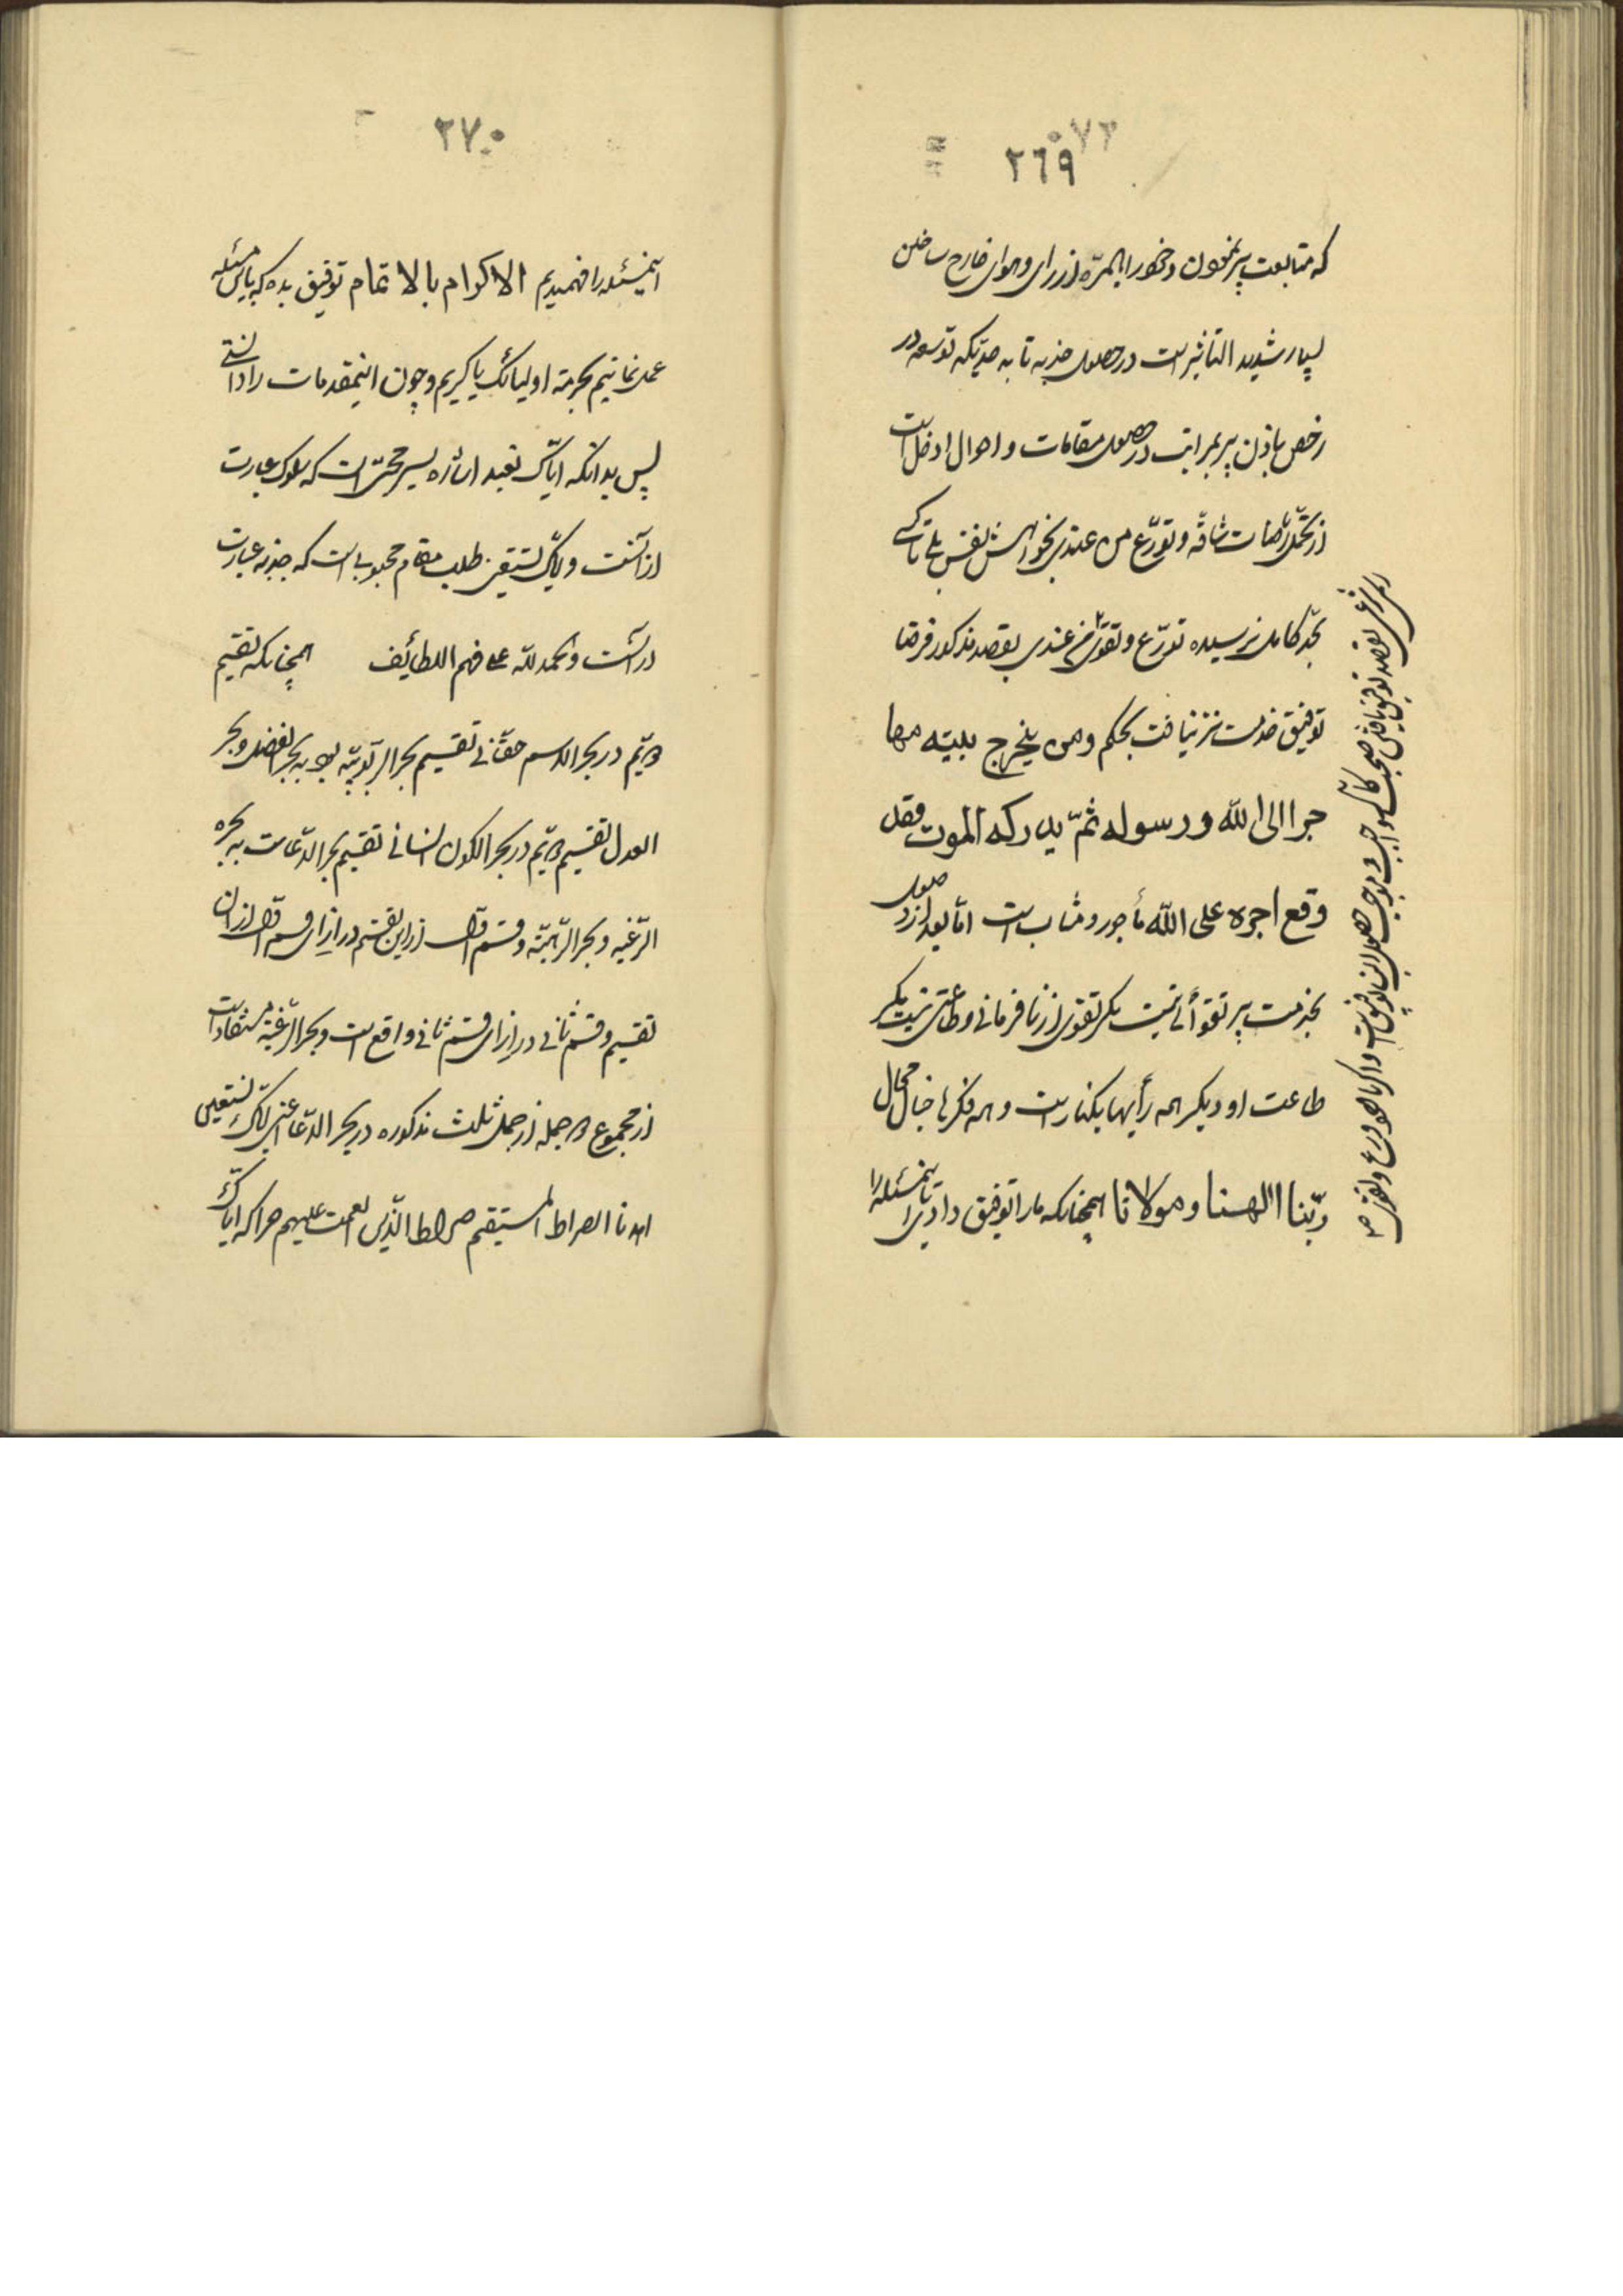 ٢٦٩
که متابعت پیر نمودن و خود را بالمرّه از رای و هوای خارج ساختن
بسیار شدید التأثیر است در حصول جذبه تا به حدیکه توسعه در
رخص باذن پیر بمراتب در حصول مقامات و احوال ادخل است
از تحمّل ریاضات شاقّه و تورّع من عندی بخواهش نفس بلی تا کسی
بخدمت کامل نرسیده تورّع و تقوی من عندی بقصد مذکور فرضا
توفیق خدمت نیز نیافت بحکم ومن یخرج بیته مها
جرا الی الله ورسوله ثمّ یدرکه الموت فقد
وقع اجره علی الله مأجور و مثاب است امّا بعد از وصول
بخدمت پیر تقوائی نیست مگر تقوی از نافرمانی و طاعتی نیست مگر
طاعت او دیگر همه رأیها یکنار است و همه فکرها خیال محال
ربّنا الهنا ومولانا همچنانکه ما را توفیق دادی تا اینمسئله را
٢٧٠
اینمسئله را فهمیدیم الاکرام بالاتمام توفیق بده که باین مسئله
عمل نمائیم بحرمة اولیائک یا کریم و چون اینمقدمات را دانستی
پس بدانکه ایّاک نعبد اشاره بسیر محبّی است که سلوک عبارت
از آنست و ایّاک نستعین طلب مقام محبوبی است که جذبه عبارت
از آنست والحمد لله علی فهم اللطائف همچنانکه تقسیم
دویّم در بحر الاسم حقّانی تقسیم بحر الربوبیّه بود به بحر الفضل و بحر
العدل تقسیم دویّم در بحر الکون انسانی تقسیم بحر الدّعاست به بحر
الرّغبه و بحر الرّهبه و قسم اوّل از این تقسیم در ازای قسم اوّل از آن
تقسیم و قسم ثانی در ازای قسم ثانی واقع است و بحر الرّغبة مستفاد است
از مجموع دو جمله از جمل ثلث مذکوره در بحر الدّعا اعنی ایّاک نستعین
اهدنا الصراط المستقیم صراط الّذین انعمت علیهم چرا که ایّاک